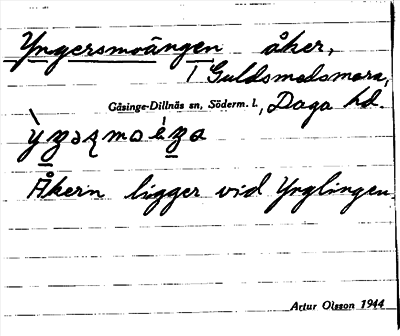 Yngersmoängen åker,
i Guldsmedsmora,
Gåsinge-Dillnäs sn, Söderm. l., Daga hd.
Åkern ligger vid Ynglingen.
Artur Olsson 1944